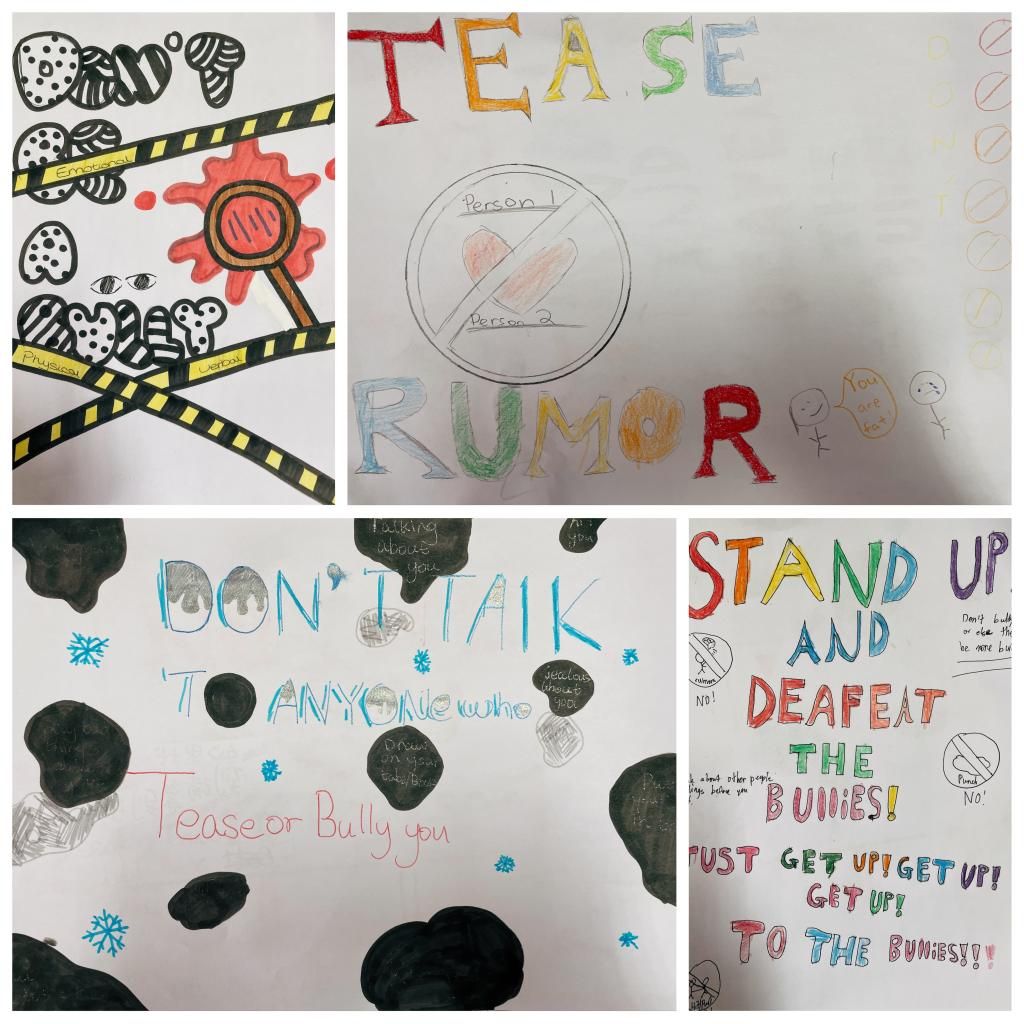 DON'T
BE
Emotional
A
BULLY
Physical
Verbal
TEASE
D
O
N
'
T
Person 1
Person 2
RUMOR
You
are
fat!
Talking
about
you
you
DON'T TALK
TO ANYONE who
jealous
about
you
Draw
on your
Tease or Bully you
STAND UP
AND
Don't
or else
be more
NO!
DEAFEAT
THE
about other people
before you
BUllIES!
Punch
NO!
JUST GET UP! GET UP!
GET UP!
TO THE BUllIES!!!